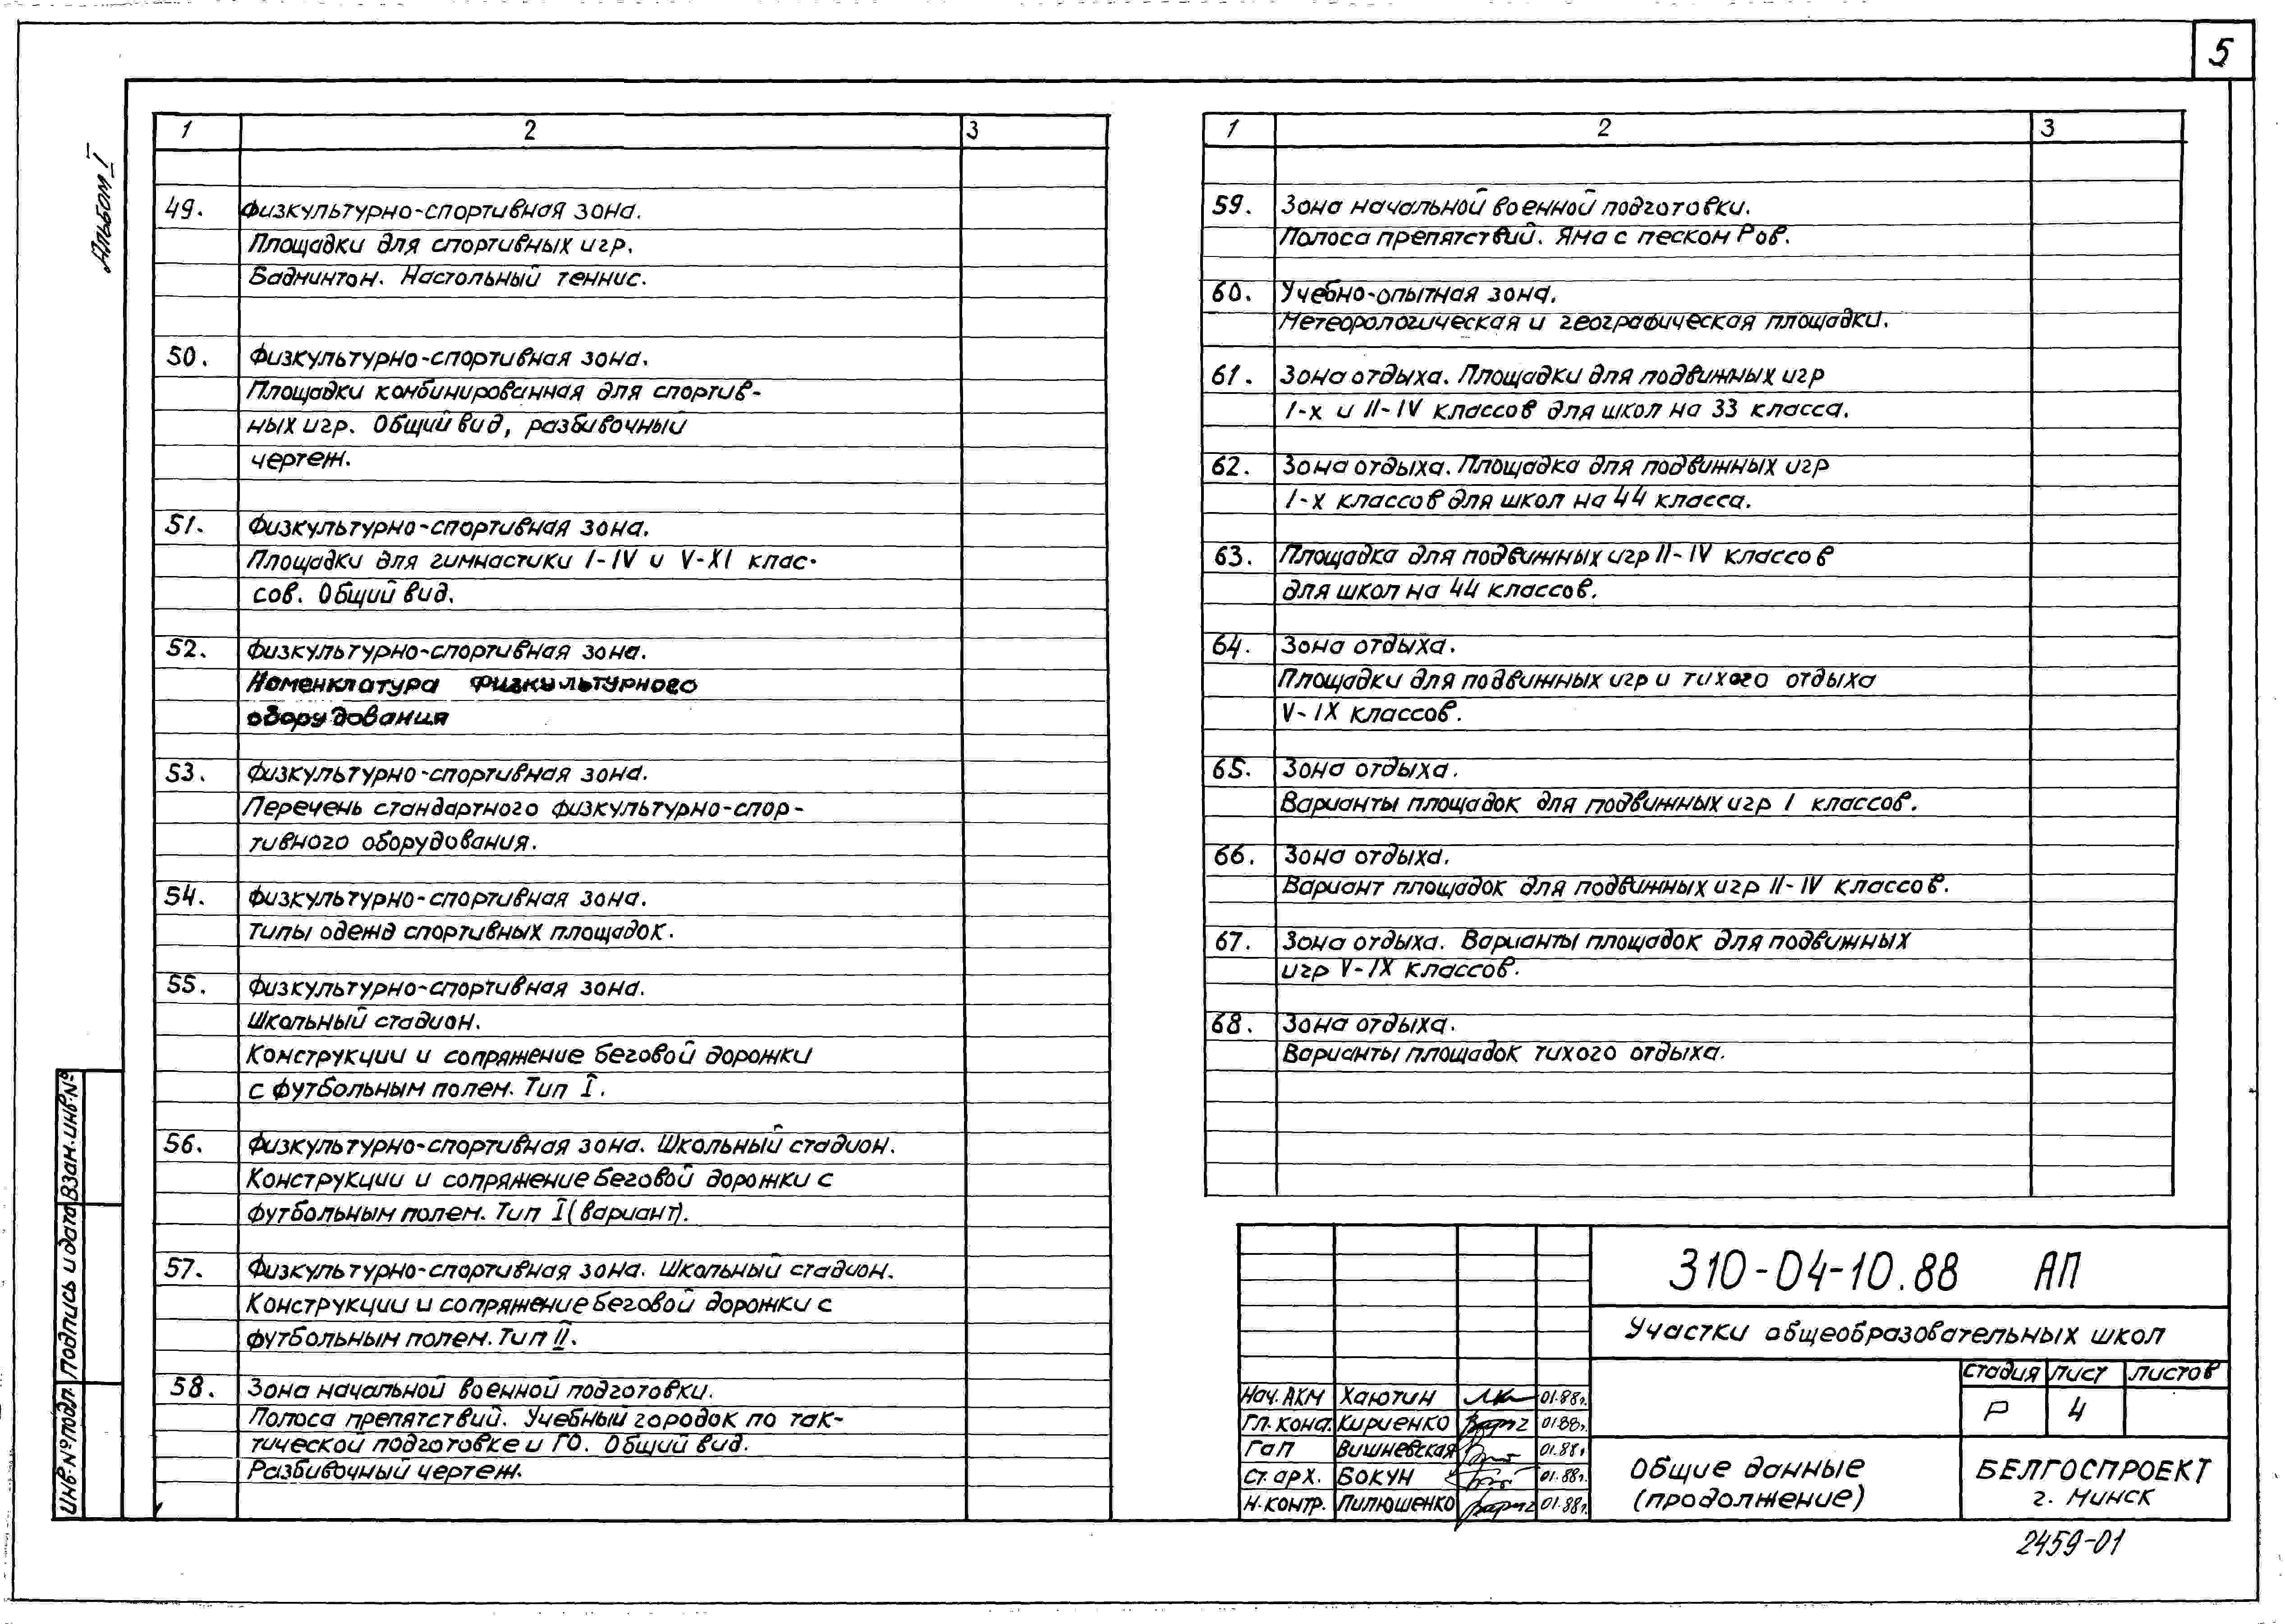 5
Альбом I
1 2 3
49. Физкультурно-спортивная зона.
Площадки для спортивных игр.
Бадминтон. Настольный теннис.
50. Физкультурно-спортивная зона.
Площадки комбинированная для спортив-
ных игр. Общий вид, разбивочный
чертеж.
51. Физкультурно-спортивная зона.
Площадки для гимнастики I-IV и V-XI клас-
сов. Общий вид.
52. Физкультурно-спортивная зона.
Номенклатура физкультурного
оборудования
53. Физкультурно-спортивная зона.
Перечень стандартного физкультурно-спор-
тивного оборудования.
54. Физкультурно-спортивная зона.
Типы одежд спортивных площадок.
55. Физкультурно-спортивная зона.
Школьный стадион.
Конструкции и сопряжение беговой дорожки
с футбольным полем. Тип I.
56. Физкультурно-спортивная зона. Школьный стадион.
Конструкции и сопряжение беговой дорожки с
футбольным полем. Тип I (вариант).
57. Физкультурно-спортивная зона. Школьный стадион.
Конструкции и сопряжение беговой дорожки с
футбольным полем. Тип II.
58. Зона начальной военной подготовки.
Полоса препятствий. Учебный городок по так-
тической подготовке и ГО. Общий вид.
Разбивочный чертеж.
1 2 3
59. Зона начальной военной подготовки.
Полоса препятствий. Яма с песком Ров.
60. Учебно-опытная зона.
Метеорологическая и географическая площадки.
61. Зона отдыха. Площадки для подвижных игр
I-х и II-IV классов для школ на 33 класса.
62. Зона отдыха. Площадка для подвижных игр
I-х классов для школ на 44 класса.
63. Площадка для подвижных игр II-IV классов
для школ на 44 классов.
64. Зона отдыха.
Площадки для подвижных игр и тихого отдыха
V-IX классов.
65. Зона отдыха.
Варианты площадок для подвижных игр I классов.
66. Зона отдыха.
Вариант площадок для подвижных игр II-IV классов.
67. Зона отдыха. Варианты площадок для подвижных
игр V-IX классов.
68. Зона отдыха.
Варианты площадок тихого отдыха.
Взам.инв.№
Подпись и дата
Инв.№подл.
310-04-10.88 АП
Участки общеобразовательных школ
стадия лист листов
Р 4
Нач.АКМ Хаютин 01.88г.
Гл.конс. Кириенко 01.88г.
ГАП Вишневская 01.88г.
Ст.арх. Бокун 01.88г.
Н.контр. Пилюшенко 01.88г.
Общие данные
(продолжение)
БЕЛГОСПРОЕКТ
г. Минск
2459-01